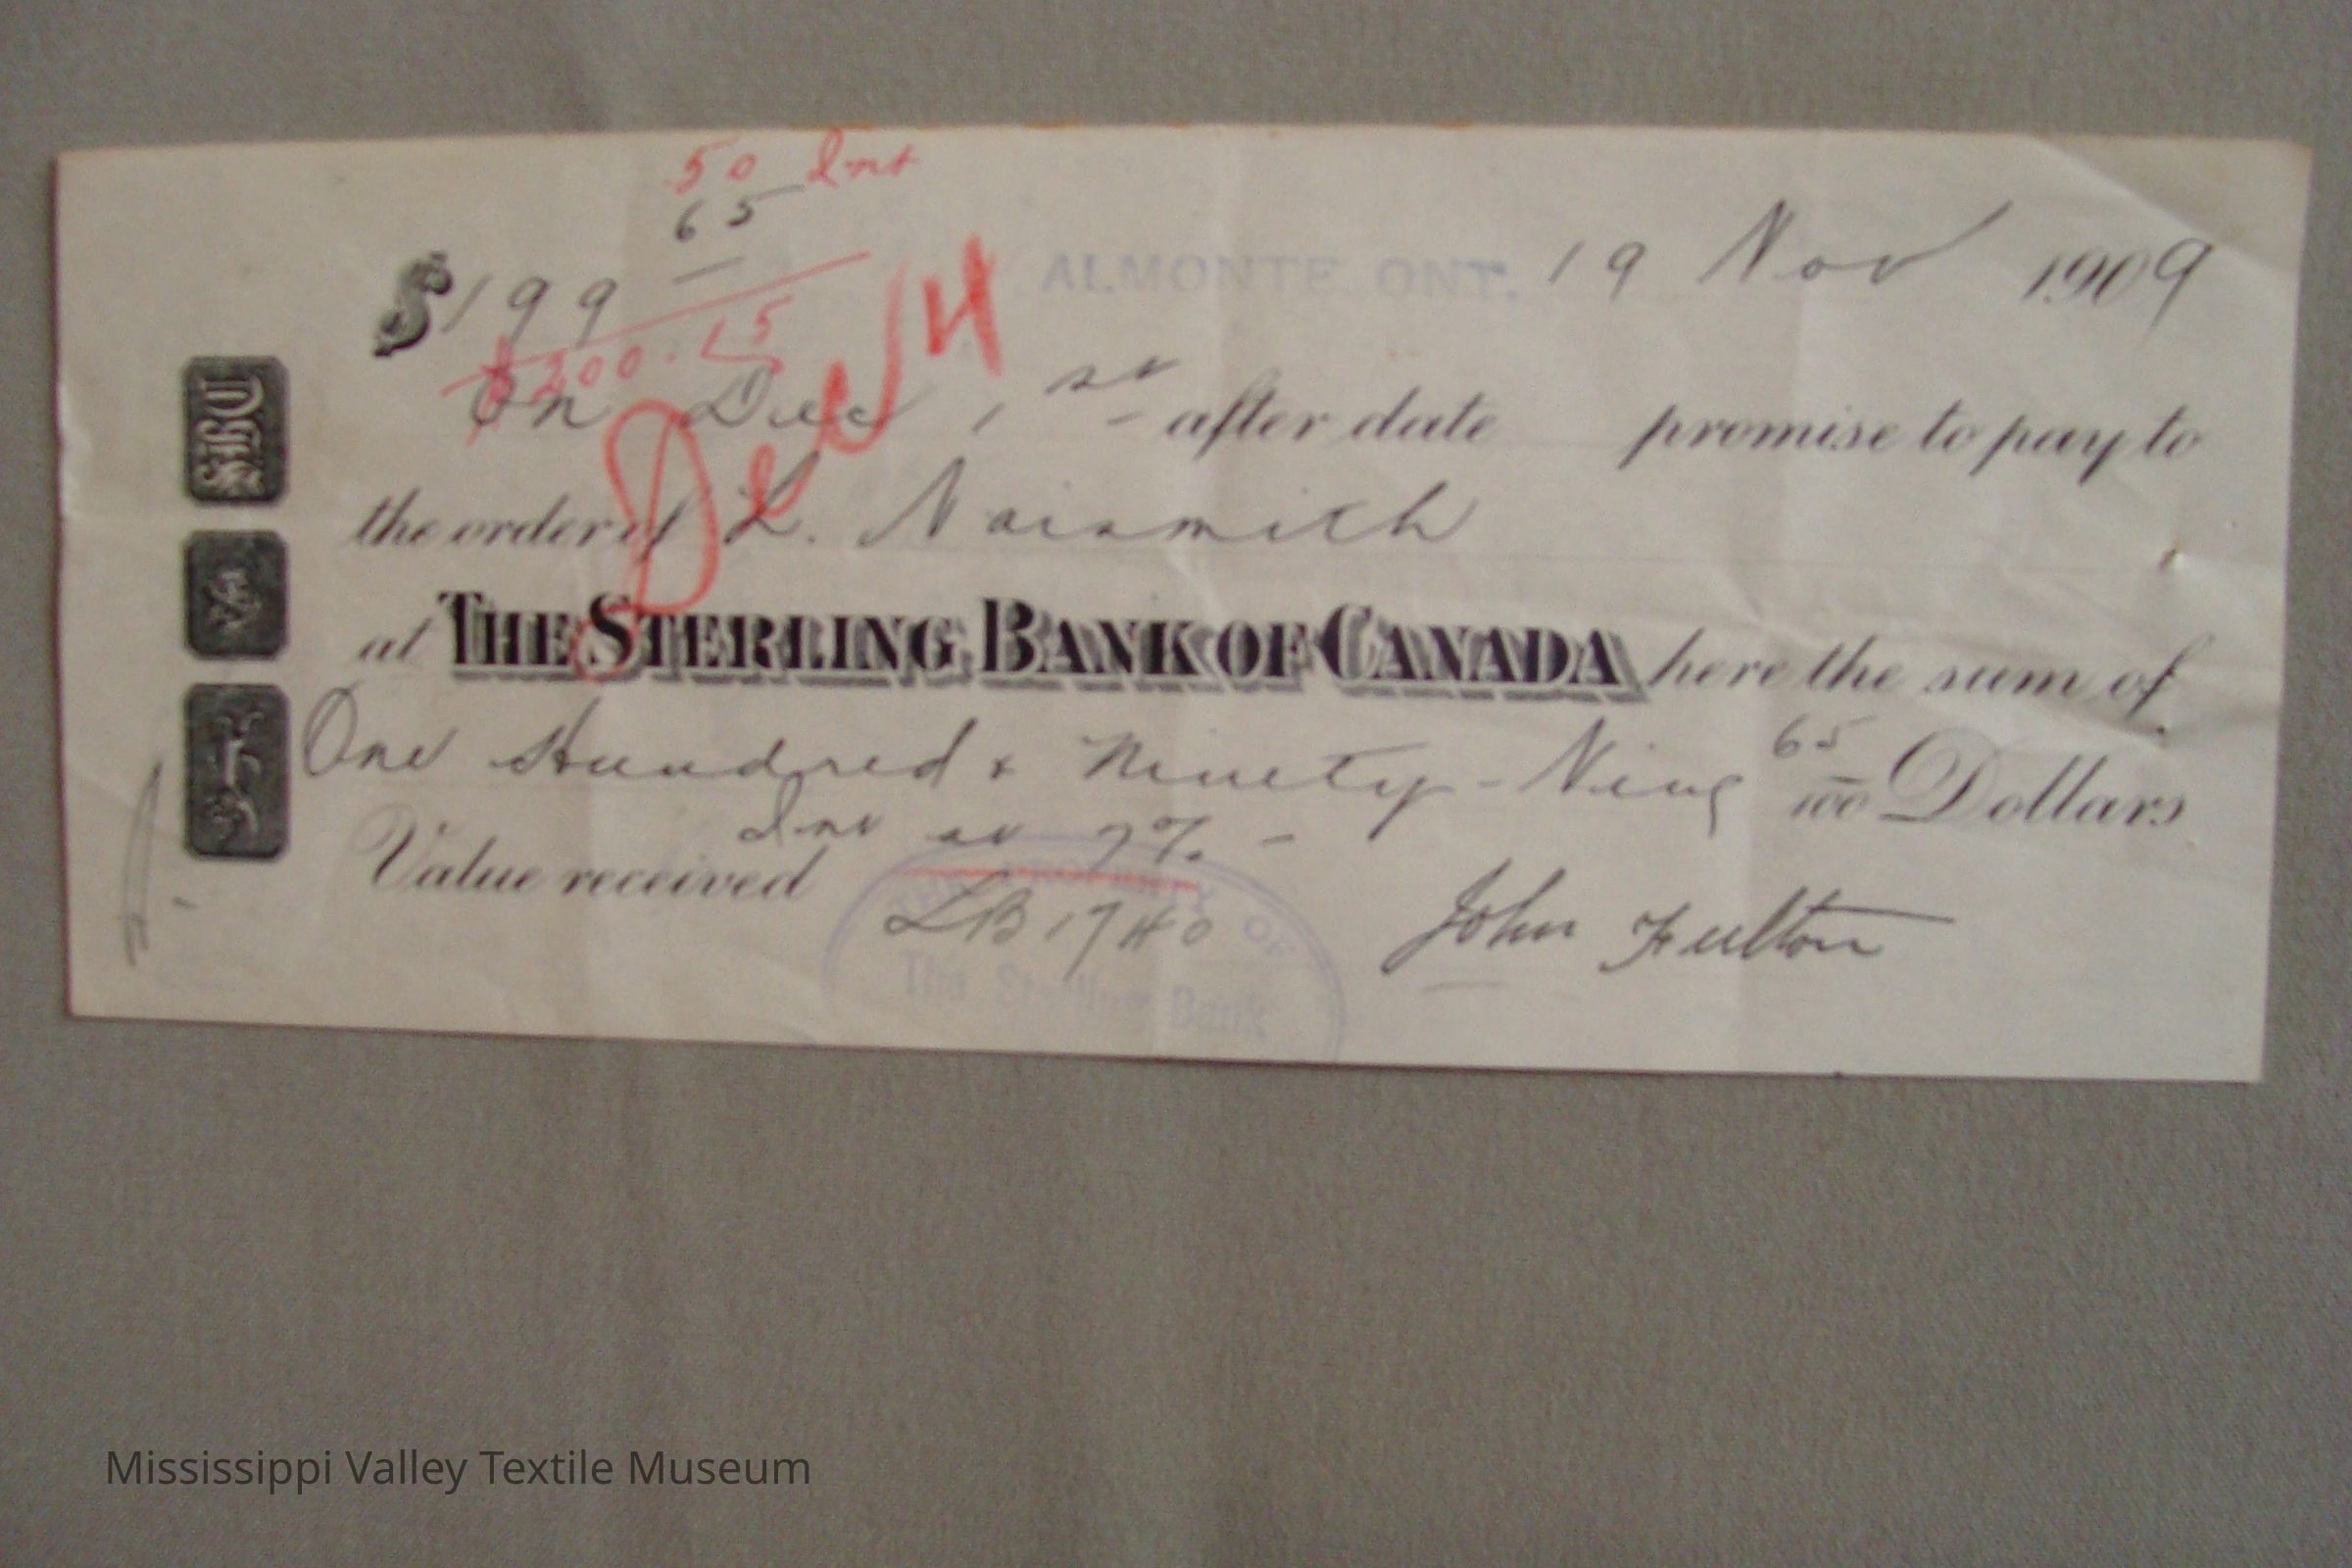 50 Int
65
$199
ALMONTE. ONT. 19 Nov 1909
$200.15
Dec 4
On Dec 1st after date promise to pay to
the order of L. Naismith
at THE STERLING BANK OF CANADA here the sum of
One Hundred & Ninety-Nine 65/100 Dollars
Int at 7%.
Value received
THE PROPERTY OF
LB 1740
John Fulton
The Sterling Bank
Mississippi Valley Textile Museum